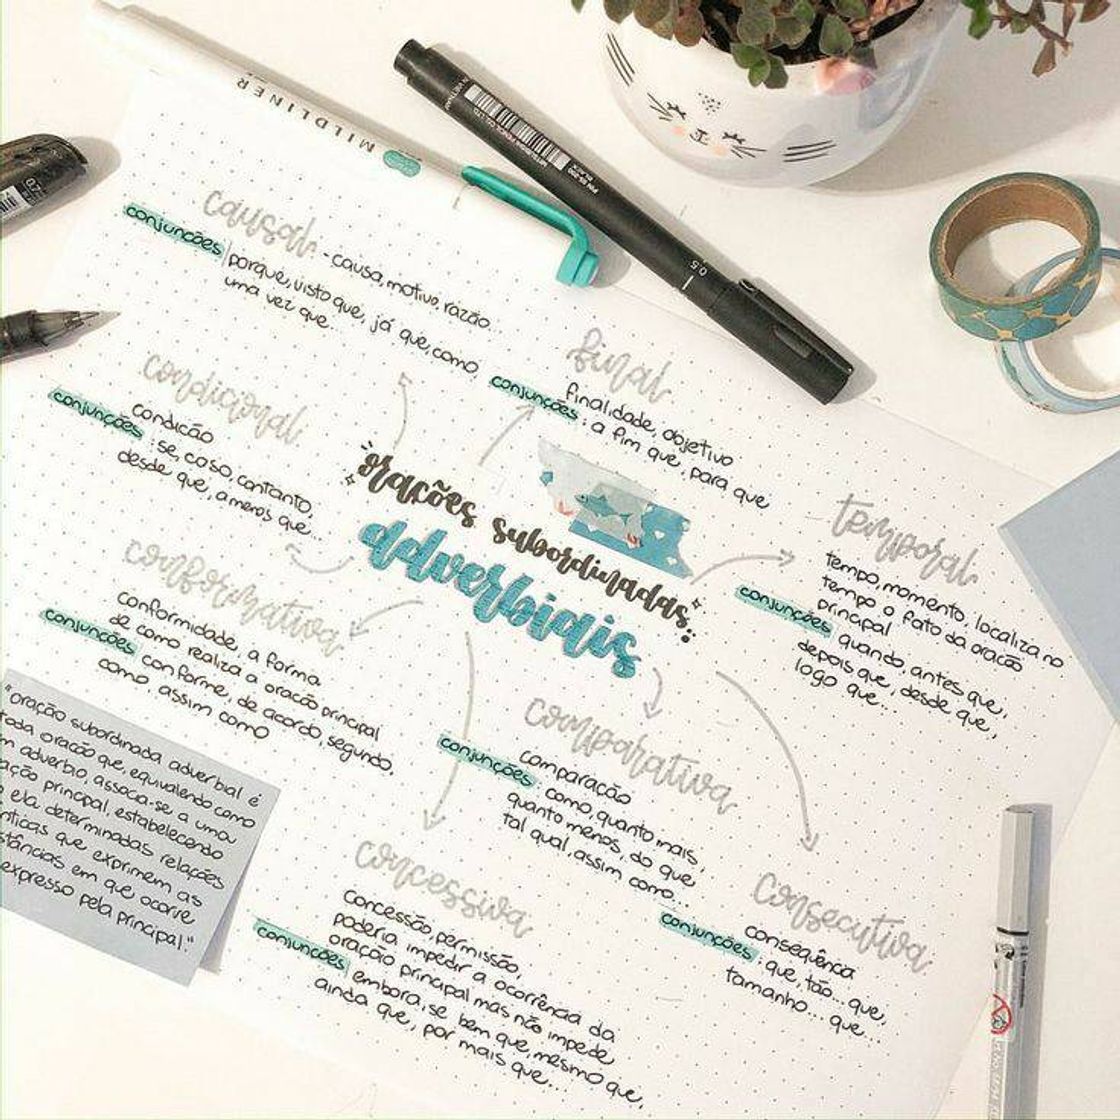 MILDLINER
MITSUBISHI PENCIL CO. LTD.
PIN 05-200
BLACK
0.5
0.7
causal - causa, motivo, razão...
conjunções porque, visto que, já que, como
uma vez que...
final
finalidade, objetivo
conjunções: a fim que, para que
condicional
condição
conjunções: se, caso, contanto,
desde que, a menos que...
orações subordinadas
adverbiais
temporal
tempo, momento, localiza no
tempo o fato da oração
principal
conjunções quando, antes que,
depois que, desde que,
logo que...
conformativa
conformidade, a forma
de como realiza a oração principal
conjunções conforme, de acordo, segundo,
como, assim como
comparativa
comparação
conjunções: como, quanto mais,
quanto menos, do que,
tal qual, assim como...
concessiva
concessão, permissão,
poderia impedir a ocorrência da
oração principal mas não impede
conjunções embora, se bem que, mesmo que,
ainda que, por mais que...
consecutiva
consequência
conjunções: que, tão... que,
tamanho... que...
"oração subordinada adverbial é
toda oração que, equivalendo como
advérbio, associa-se a uma
principal, estabelecendo
ela determinadas relações
que exprimem as
em que ocorre
expresso pela principal."